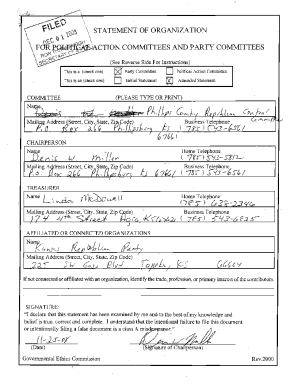 FILED
DEC 01 2008
RON
SECRETARY
STATEMENT OF ORGANIZATION
FOR POLITICAL ACTION COMMITTEES AND PARTY COMMITTEES
(See Reverse Side For Instructions)
This is a (check one) Party Committee Political Action Committee
This is a (check one) Initial Statement Amended Statement
COMMITTEE (PLEASE TYPE OR PRINT)
Name
Phillips County Republican Central Committee
Mailing Address (Street, City, State, Zip Code) Business Telephone
P.O. Box 266 Phillipsburg KS (785) 543-6561
67661
CHAIRPERSON
Name Home Telephone
Denis W. Miller (785) 543-5812
Mailing Address (Street, City, State, Zip Code) Business Telephone
P.O. Box 266 Phillipsburg KS 67661 (785) 543-6561
TREASURER
Name Home Telephone
Linda McDowell (785) 638-2346
Mailing Address (Street, City, State, Zip Code) Business Telephone
174 4th Street (785) 543-6825
AFFILIATED OR CONNECTED ORGANIZATIONS
Name
Kansas Republican Party
Mailing Address (Street, City, State, Zip Code)
Topeka, KS
If not connected or affiliated with an organization, identify the trade, profession, or primary interest of the contributors.
SIGNATURE:
"I declare that this statement has been examined by me and to the best of my knowledge and
belief is true, correct and complete. I understand that the intentional failure to file this document
or intentionally filing a false document is a class A misdemeanor."
11-25-08
(Date) (Signature of Chairperson)
Governmental Ethics Commission Rev.2000